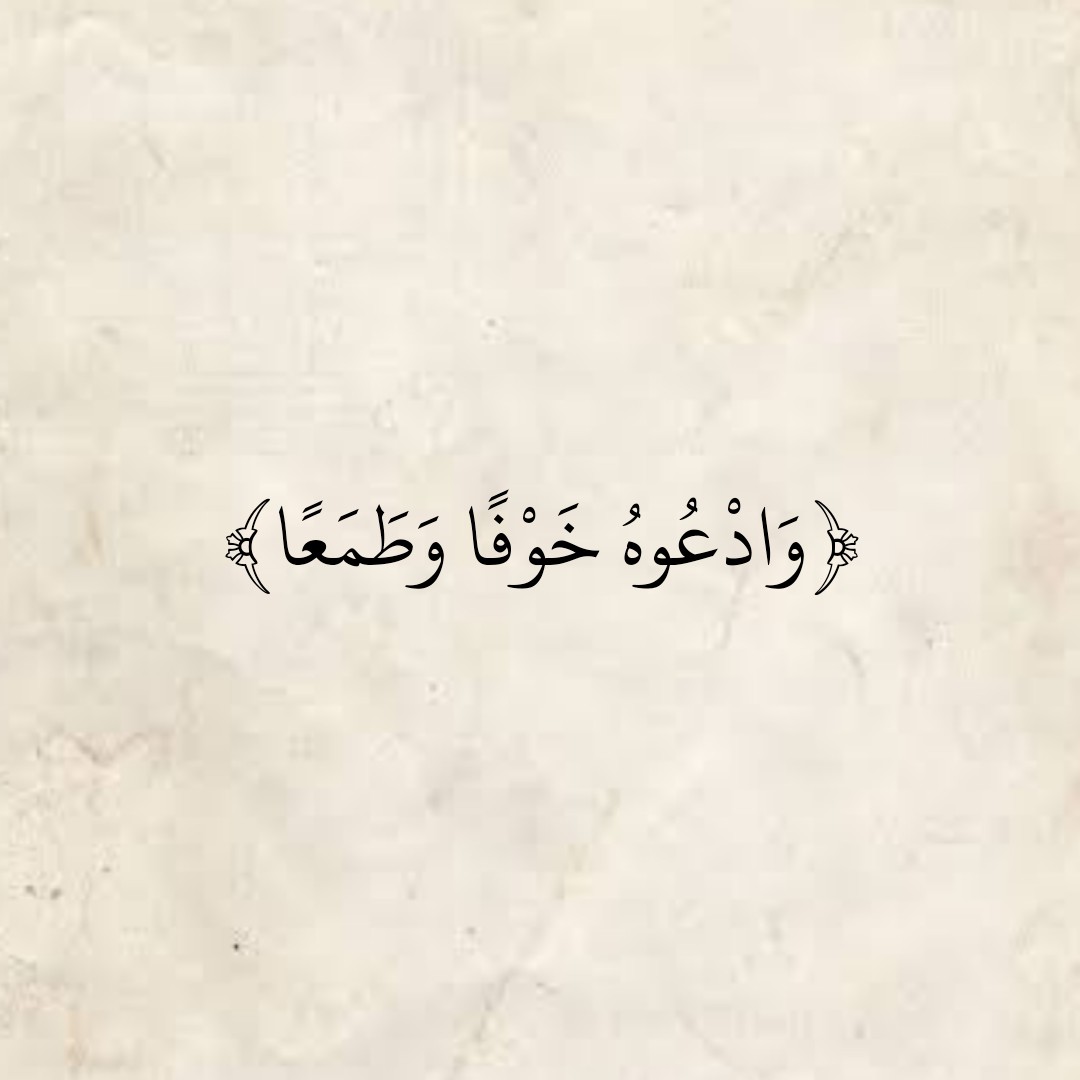 ﴿وَادْعُوهُ خَوْفًا وَطَمَعًا﴾